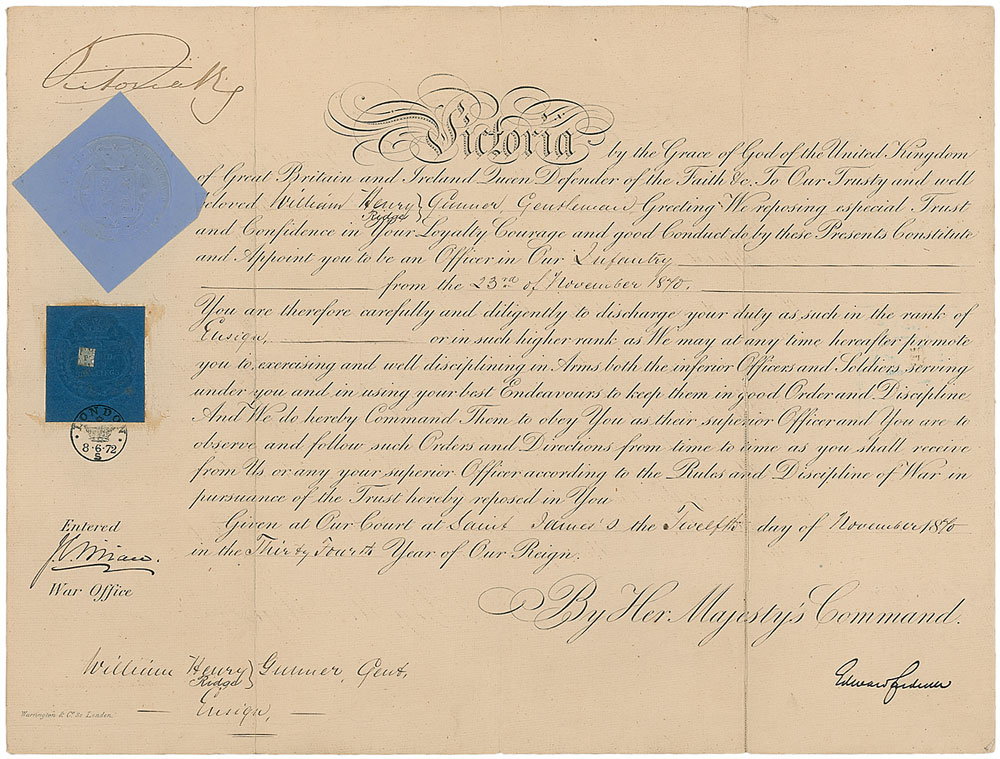 Victoria R
Victoria by the Grace of God of the United Kingdom
of Great Britain and Ireland Queen Defender of the Faith &c. To Our Trusty and well
beloved William Henry Ridge Gunner Gentleman Greeting We reposing especial Trust
and Confidence in Your Loyalty Courage and good Conduct do by these Presents Constitute
and Appoint you to be an Officer in Our Infantry
from the 23rd of November 1870.
You are therefore carefully and diligently to discharge your duty as such in the rank of
Ensign, or in such higher rank as We may at any time hereafter promote
you to, exercising and well disciplining in Arms both the inferior Officers and Soldiers serving
under you and in using your best Endeavours to keep them in good Order and Discipline.
And We do hereby Command Them to obey You as their superior Officer and You are to
observe and follow such Orders and Directions from time to time as you shall receive
from Us or any your superior Officer according to the Rules and Discipline of War in
pursuance of the Trust hereby reposed in You
Given at Our Court at Saint James's the Twelfth day of November 1870
in the Thirty Fourth Year of Our Reign.
By Her Majesty's Command.
LONDON
8·6·72
S
Entered
War Office
William Henry Ridge Gunner, Gent,
Ensign,
Edward
Warrington & Co. Sc. London.